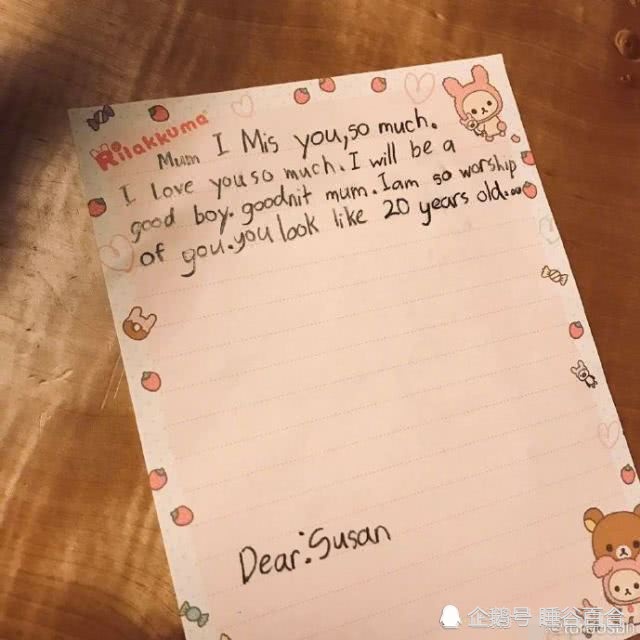 Rilakkuma
Mum I Mis you,so much.
I love you so much.I will be a
good boy.goodnit mum.I am so worship
of you.you look like 20 years old....
Dear:Susan
企鹅号 睡谷百合